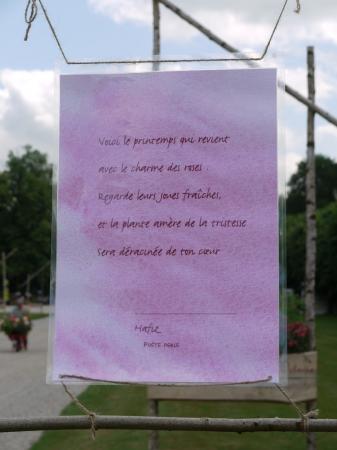 Voici le printemps qui revient
avec le charme des roses.
Regarde leurs joues fraîches,
et la plante amère de la tristesse
Sera déracinée de ton cœur
Hafiz